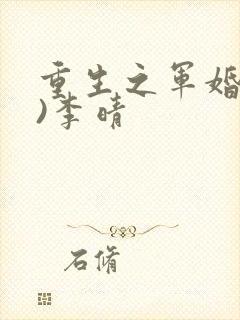 重生之军婚
)李晴
石脩